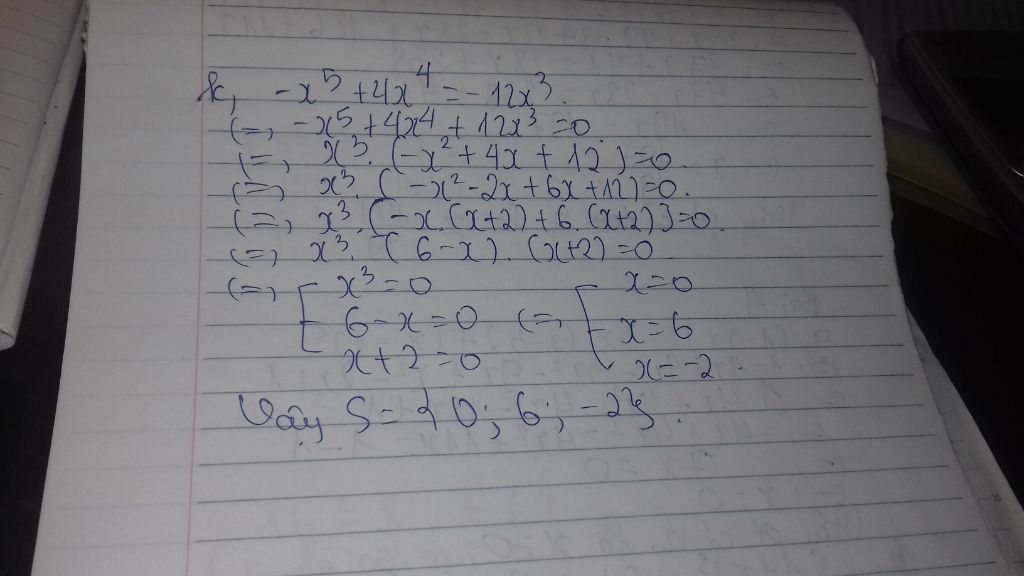 k, -x⁵ + 4x⁴ = - 12x³.
(=, -x⁵ + 4x⁴ + 12x³ = 0
(=, x³. (-x² + 4x + 12) = 0.
(=), x³. ( -x² - 2x + 6x + 12) = 0.
(=, x³. [-x.(x+2) + 6.(x+2)] = 0.
(=, x³. (6-x). (x+2) = 0
(=, [ x³ = 0 x = 0
6 - x = 0 (=, [ x = 6
x + 2 = 0 x = -2.
Vậy S = {0; 6; -2}.